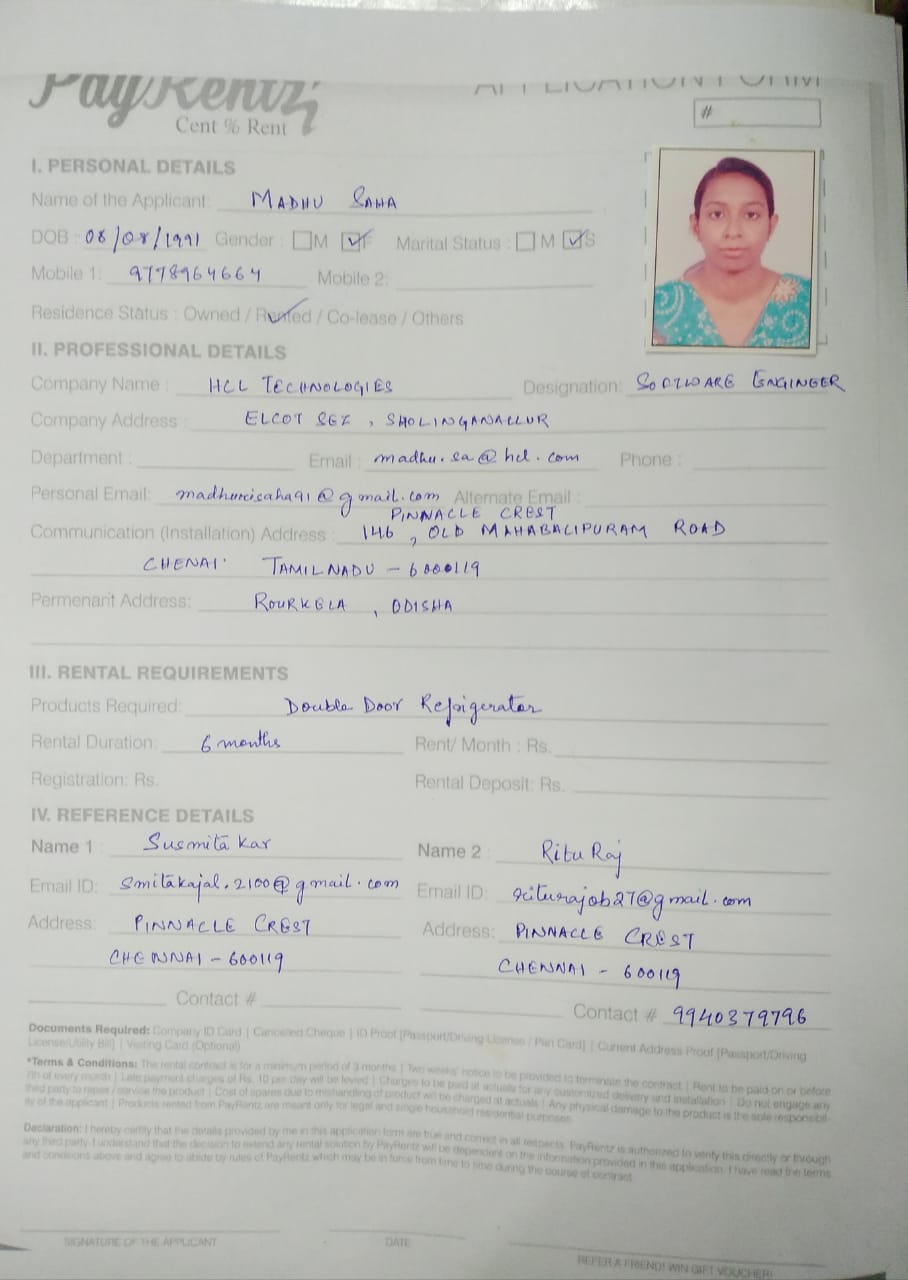 PayRentz
APPLICATION FORM
Cent % Rent
#
I. PERSONAL DETAILS
Name of the Applicant: MADHU SAHA
DOB : 08/08/1991 Gender : M F Marital Status : M S
Mobile 1: 9778964664 Mobile 2:
Residence Status : Owned / Rented / Co-lease / Others
II. PROFESSIONAL DETAILS
Company Name : HCL TECHNOLOGIES Designation: SOFTWARE ENGINEER
Company Address : ELCOT SEZ , SHOLINGANALLUR
Department : Email : madhu.sa@hcl.com Phone :
Personal Email: madhurisaha91@gmail.com Alternate Email :
PINNACLE CREST
Communication (Installation) Address : 146 , OLD MAHABALIPURAM ROAD
CHENAI TAMILNADU - 6000119
Permenant Address: ROURKELA , ODISHA
III. RENTAL REQUIREMENTS
Products Required: Double Door Refrigerator
Rental Duration: 6 months Rent/ Month : Rs.
Registration: Rs. Rental Deposit: Rs.
IV. REFERENCE DETAILS
Name 1 : Susmita Kar Name 2 : Ritu Raj
Email ID: smitakajal.2100@gmail.com Email ID: riturajob27@gmail.com
Address: PINNACLE CREST Address: PINNACLE CREST
CHENNAI - 600119 CHENNAI - 600119
Contact # Contact # 9940379796
Documents Required: Company ID Card | Cancelled Cheque | ID Proof [Passport/Driving License / Pan Card] | Current Address Proof [Passport/Driving
License/Utility Bill] | Visiting Card (Optional)
*Terms & Conditions: The rental contract is for a minimum period of 3 months | Two weeks' notice to be provided to terminate the contract | Rent to be paid on or before
7th of every month | Late payment charges of Rs. 10 per day will be levied | Charges to be paid at actuals for any customized delivery and installation | Do not engage any
third party to repair / service the product | Cost of spares due to mishandling of product will be charged at actuals | Any physical damage to the product is the sole responsibil-
ity of the applicant | Products rented from PayRentz are meant only for legal and single household residential purposes
Declaration: I hereby certify that the details provided by me in this application form are true and correct in all respects. PayRentz is authorized to verify this directly or through
any third party. I understand that the decision to extend any rental solution by PayRentz will be dependent on the information provided in this application. I have read the terms
and conditions above and agree to abide by rules of PayRentz which may be in force from time to time during the course of contract
SIGNATURE OF THE APPLICANT DATE
REFER A FRIEND! WIN GIFT VOUCHER!